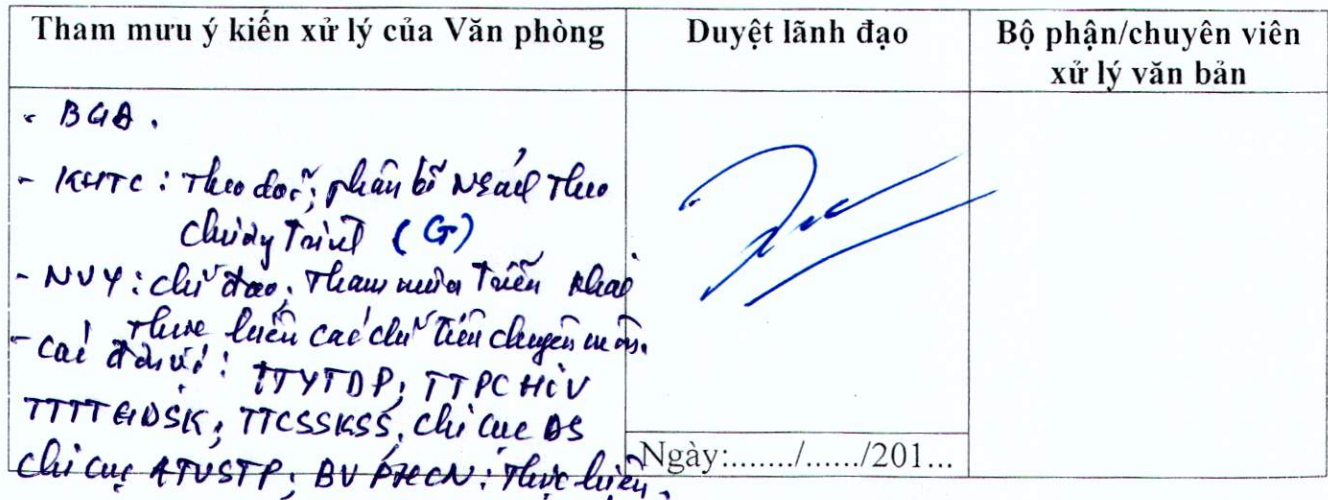 Tham mưu ý kiến xử lý của Văn phòng
Duyệt lãnh đạo
Bộ phận/chuyên viên
xử lý văn bản
- BGĐ.
- KHTC: Theo dõi, phân bổ NSách theo
chương trình (G)
- NVY: chỉ đạo, tham mưu triển khai
thực hiện các chỉ tiêu chuyên môn.
- Các đơn vị: TTYTDP; TTPC HIV
TTTTGDSK; TTCSSKSS, chi cục DS
chi cục ATVSTP; BV PHCN: thực hiện.
Ngày:......./....../201...